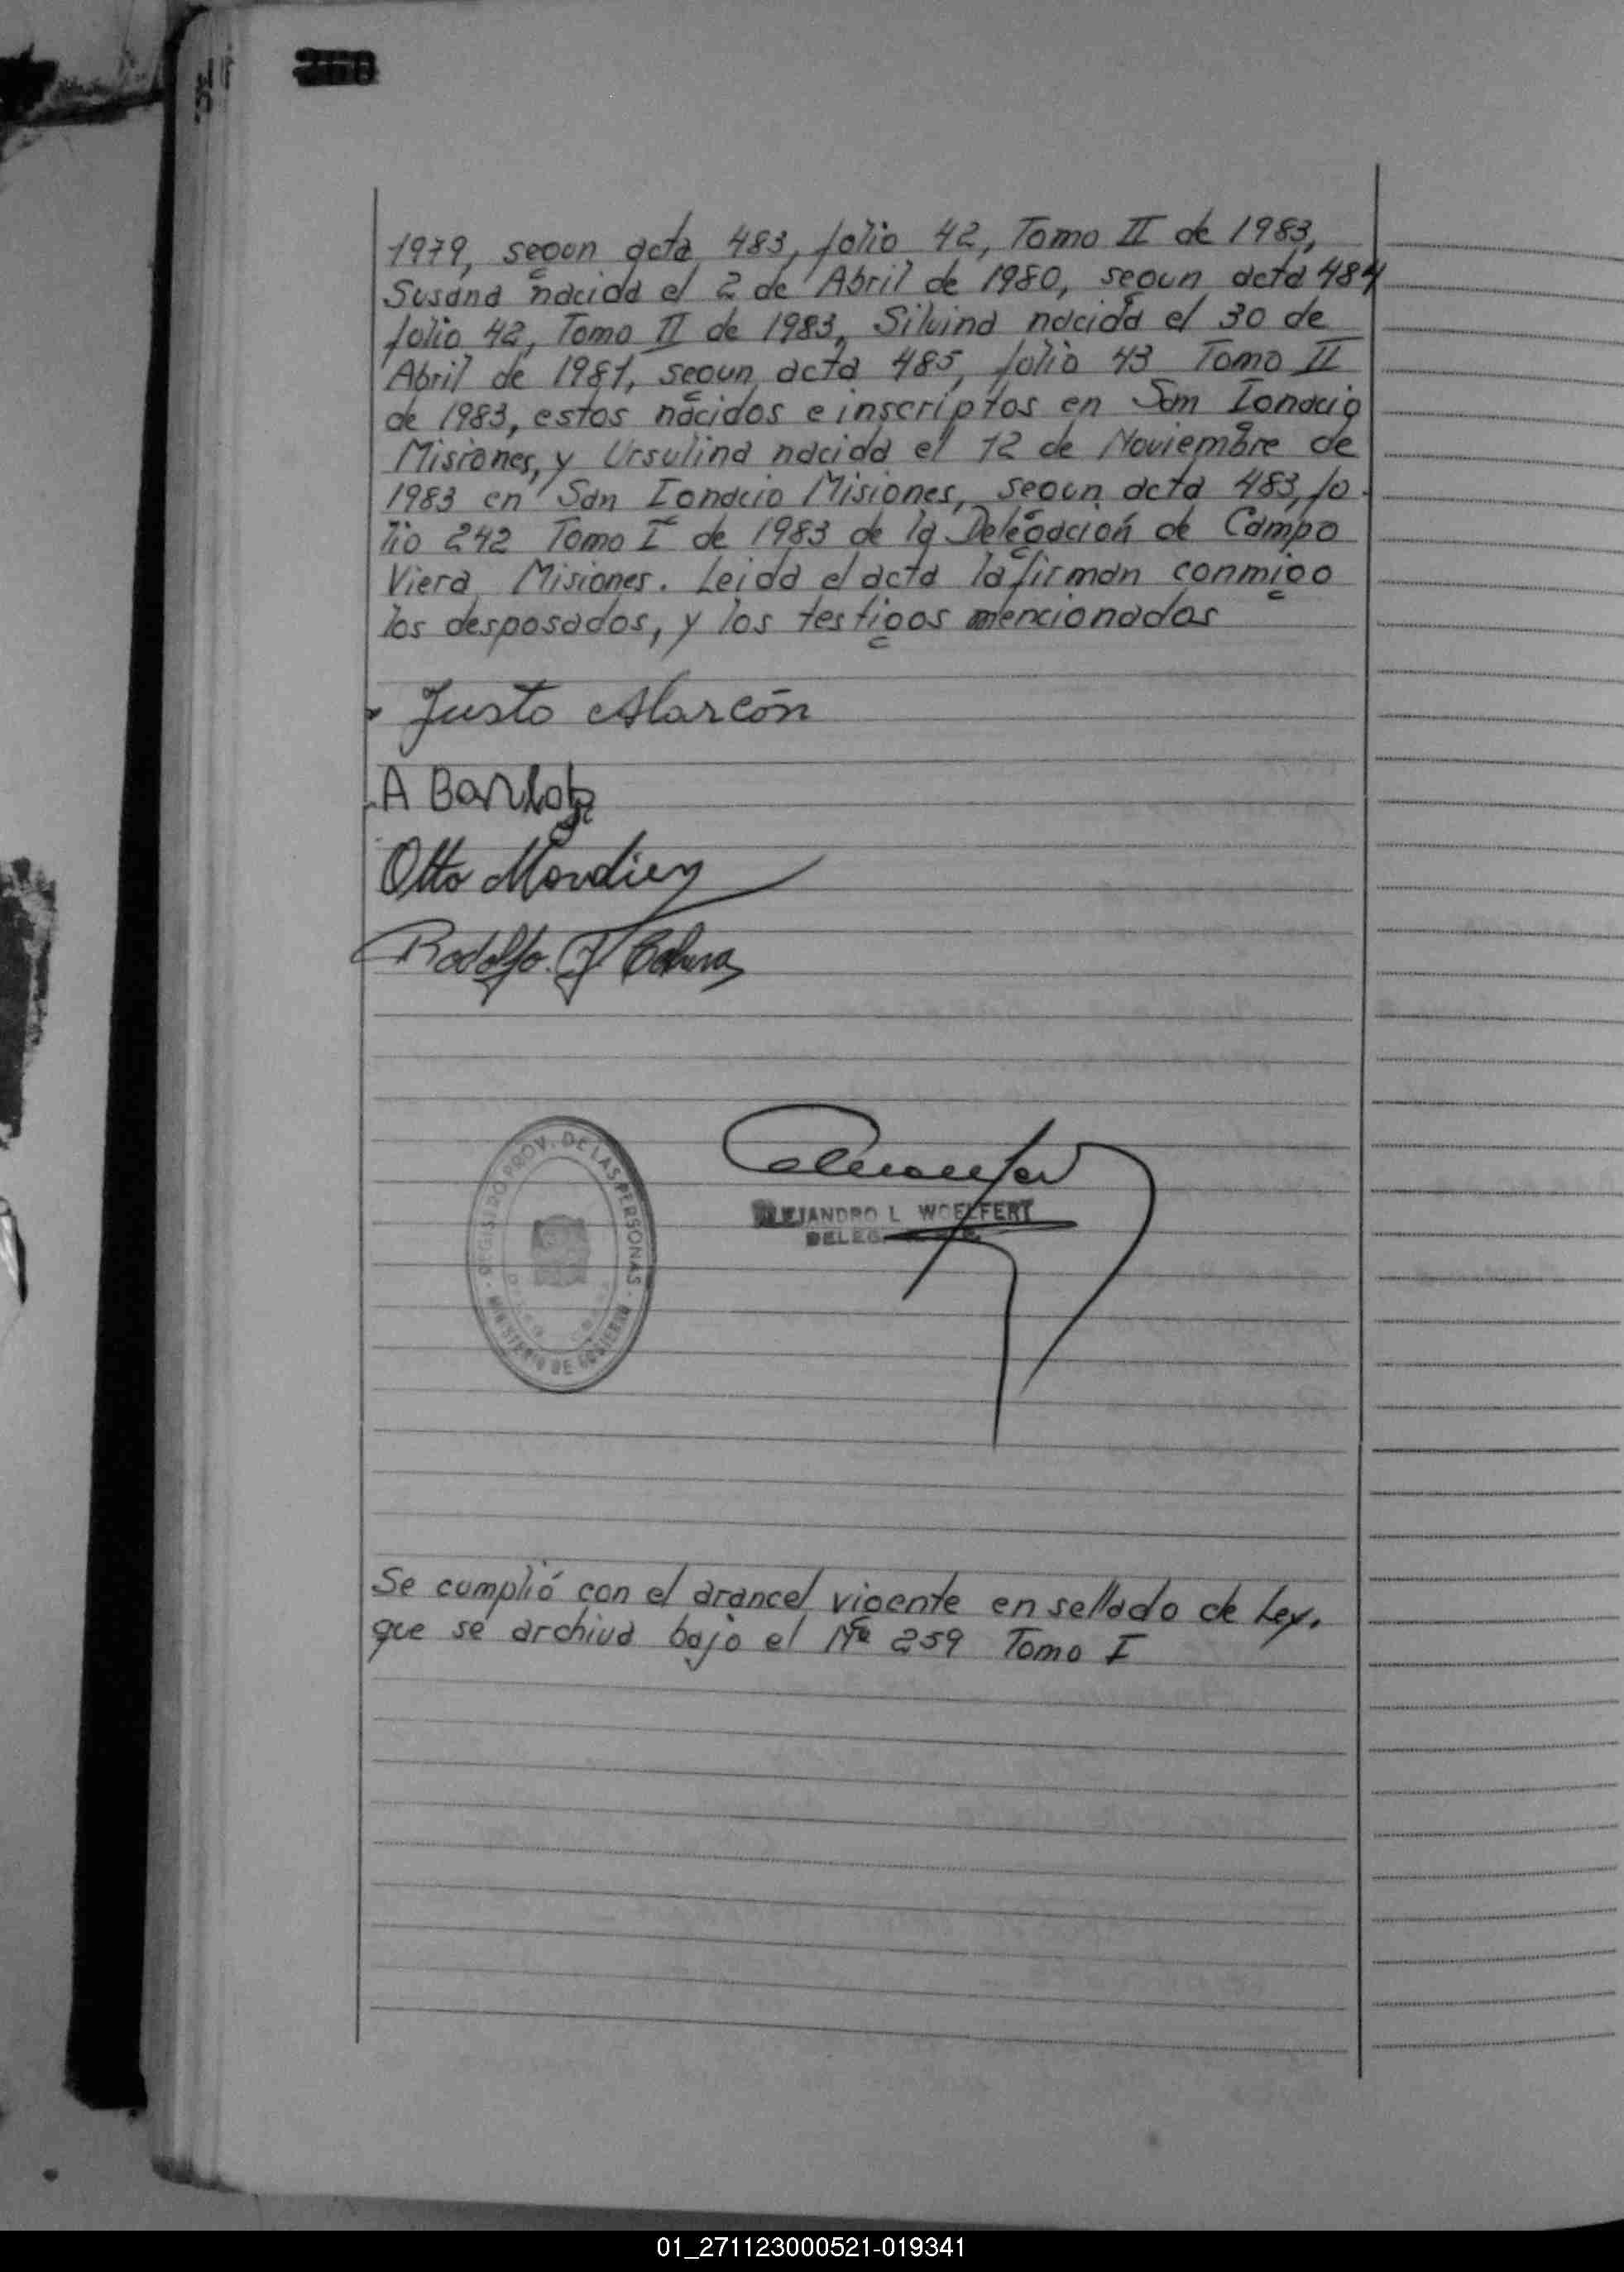 260
1979, segun acta 483, folio 42, Tomo II de 1983,
Susana nacida el 2 de Abril de 1980, segun acta 484
folio 42, Tomo II de 1983, Silvina nacida el 30 de
Abril de 1981, segun acta 485, folio 43 Tomo II
de 1983, estos nacidos e inscriptos en San Ignacio
Misiones, y Ursulina nacida el 12 de Noviembre de
1983 en San Ignacio Misiones, segun acta 483, fo
lio 242 Tomo I de 1983 de la Delegación de Campo
Viera Misiones. Leida el acta la firman conmigo
los desposados, y los testigos mencionados
Justo Alarcón
A
Otto
Rodolfo. J
REGISTRO PROV. DE LAS PERSONAS
MINISTERIO DE GOBIERNO
ALEJANDRO L WOELFERT
Se cumplió con el arancel vigente en sellado de Ley.
que se archiva bajo el Nº 259 Tomo I
01_271123000521-019341